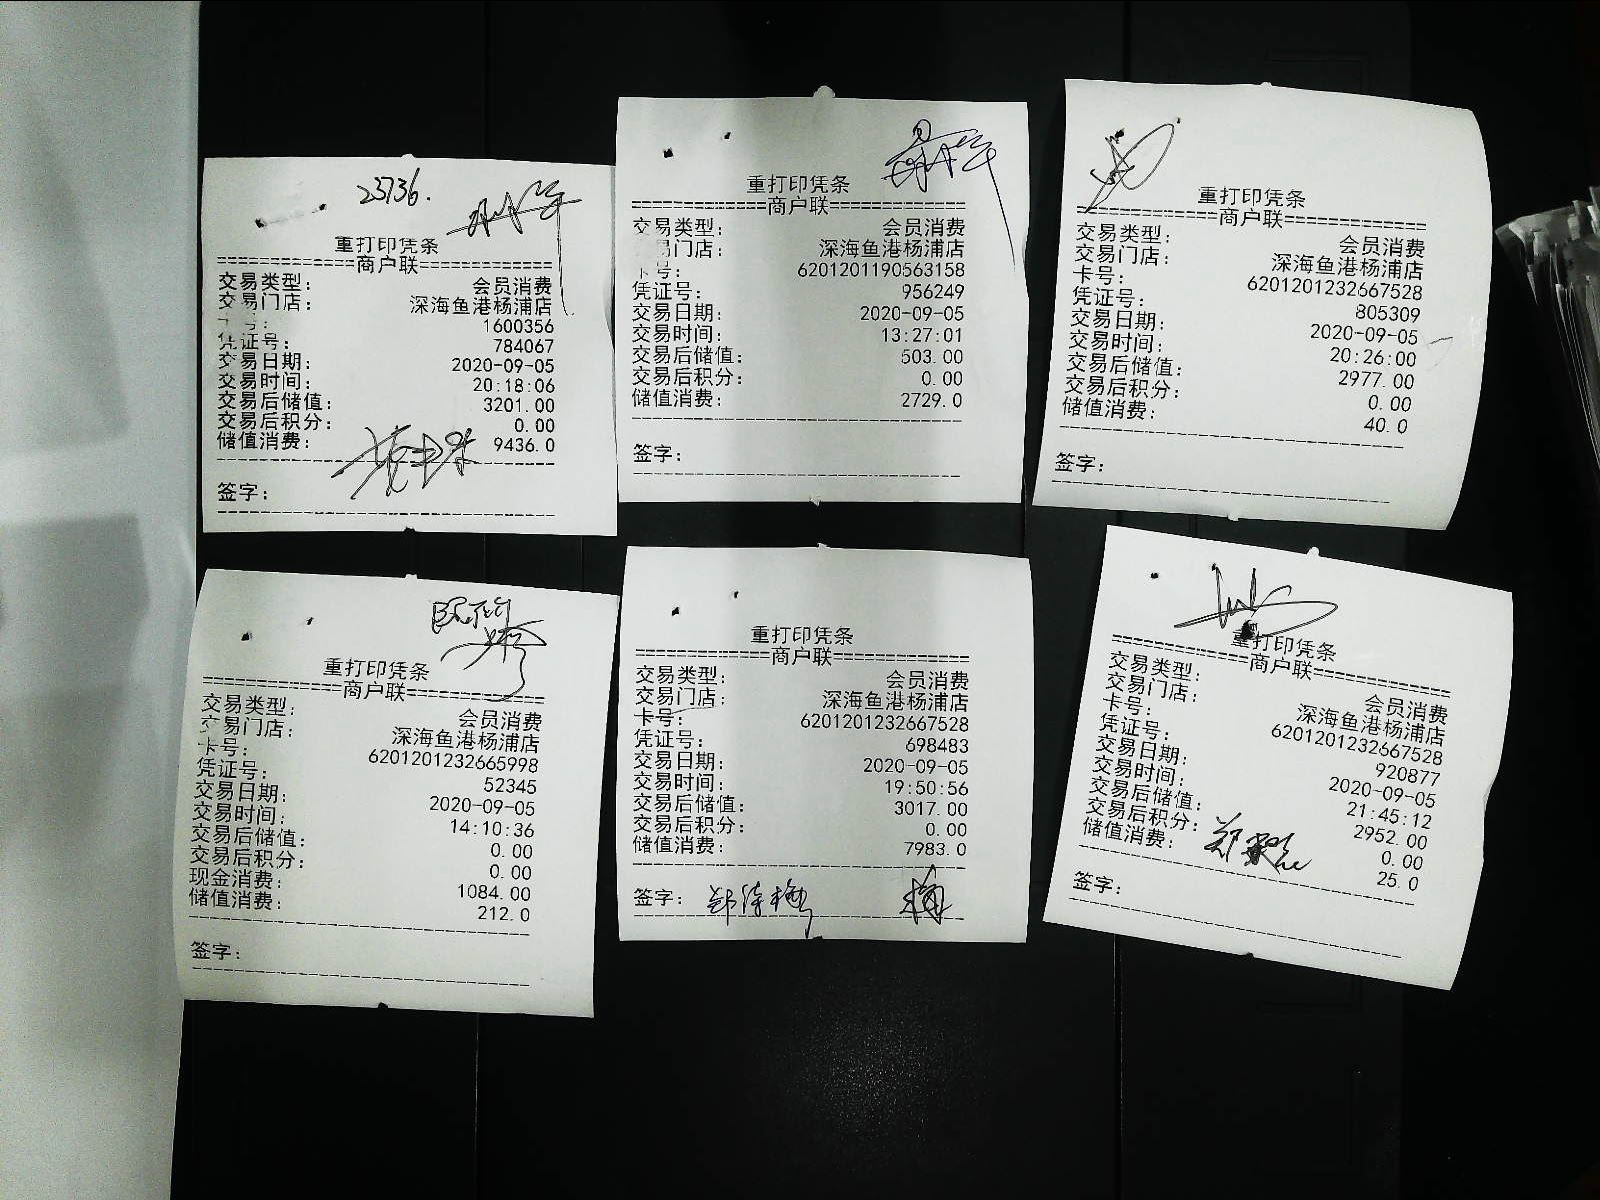 23736.
重打印凭条
=============商户联=============
交易类型： 会员消费
交易门店： 深海鱼港杨浦店
卡号： 1600356
凭证号： 784067
交易日期： 2020-09-05
交易时间： 20:18:06
交易后储值： 3201.00
交易后积分： 0.00
储值消费： 9436.0
签字：
重打印凭条
=============商户联=============
交易类型： 会员消费
交易门店： 深海鱼港杨浦店
卡号： 6201201190563158
凭证号： 956249
交易日期： 2020-09-05
交易时间： 13:27:01
交易后储值： 503.00
交易后积分： 0.00
储值消费： 2729.0
签字：
重打印凭条
=============商户联=============
交易类型： 会员消费
交易门店： 深海鱼港杨浦店
卡号： 6201201232667528
凭证号： 805309
交易日期： 2020-09-05
交易时间： 20:26:00
交易后储值： 2977.00
交易后积分： 0.00
储值消费： 40.0
签字：
重打印凭条
=============商户联=============
交易类型： 会员消费
交易门店： 深海鱼港杨浦店
卡号： 6201201232665998
凭证号： 52345
交易日期： 2020-09-05
交易时间： 14:10:36
交易后储值： 0.00
交易后积分： 0.00
现金消费： 1084.00
储值消费： 212.0
签字：
重打印凭条
=============商户联=============
交易类型： 会员消费
交易门店： 深海鱼港杨浦店
卡号： 6201201232667528
凭证号： 698483
交易日期： 2020-09-05
交易时间： 19:50:56
交易后储值： 3017.00
交易后积分： 0.00
储值消费： 7983.0
签字：
重打印凭条
=============商户联=============
交易类型： 会员消费
交易门店： 深海鱼港杨浦店
卡号： 6201201232667528
凭证号： 920877
交易日期： 2020-09-05
交易时间： 21:45:12
交易后储值： 2952.00
交易后积分： 0.00
储值消费： 25.0
签字：